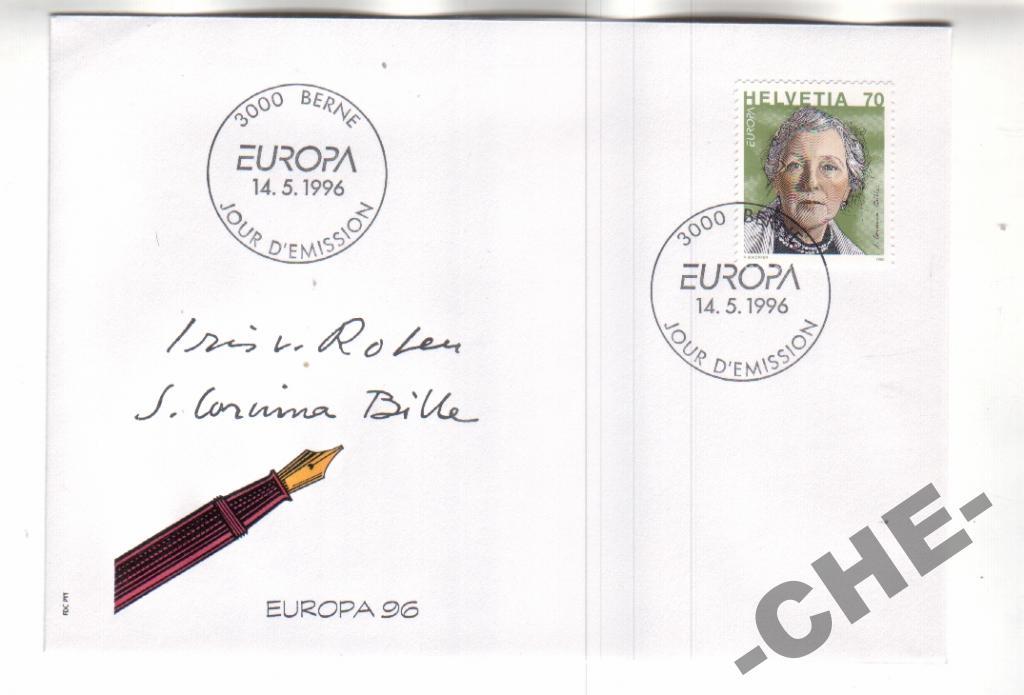 3000 BERNE
EUROPA
14.5.1996
JOUR D'EMISSION
HELVETIA 70
EUROPA
S. Corinna Bille
3000 BERNE
EUROPA
14.5.1996
JOUR D'EMISSION
Iris v. Roten
S. Corinna Bille
EUROPA 96
FDC PTT
-CHE-